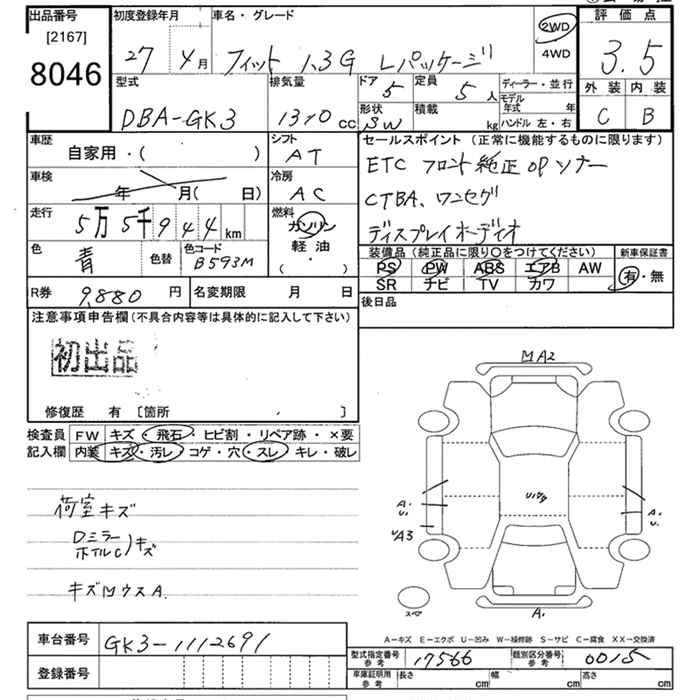 出品番号
[2167]
8046
初度登録年月
27 4月
車名・グレード
フィット 1.3G Lパッケージ
2WD
4WD
評価点
3.5
外装 内装
C B
型式
DBA-GK3
排気量
1310 cc
ドア
5
定員
5人
形状
SW
積載
kg
ディーラー・並行
モデル年式 年
ハンドル 左・右
車歴
自家用・( )
シフト
AT
車検
年 月( 日)
冷房
AC
走行
5万5千944km
燃料
ガソリン
軽油
( ・ )
色
青
色替
色コード
B593M
R券 9,880円
名変期限 月 日
セールスポイント(正常に機能するものに限ります)
ETC フロント純正opソナー
CTBA、ワンセグ
ディスプレイオーディオ
装備品(純正品に限り○をつけてください)
PS PW ABS エアB AW
SR ナビ TV カワ
新車保証書
有・無
後日品
注意事項申告欄(不具合内容等は具体的に記入して下さい)
初出品
修復歴 有 [箇所 ]
検査員
記入欄
FW キズ・飛石・ヒビ割・リペア跡・×要
内装 キズ・汚レ・コゲ・穴・スレ・キレ・破レ
荷室キズ
Dミラー
ホイルC)キズ
キズMウスA.
MA2
A.
U.
UA3
A.
U.
スペア
A.
A-キズ E-エクボ U-凹み W-補修跡 S-サビ C-腐食 XX-交換済
車台番号 GK3-1112691
登録番号
型式指定番号
参考
17566
類別区分番号
参考
0015
車庫証明用
参考
長さ cm 幅 cm 高さ cm